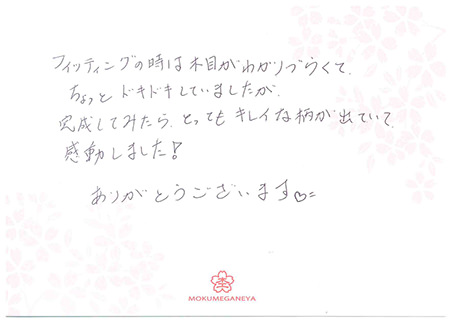 フィッティングの時は木目がわかりづらくて、
ちょっとドキドキしていましたが、
完成してみたら、とってもキレイな柄が出ていて、
感動しました！
ありがとうございます♡=
杢
MOKUMEGANEYA